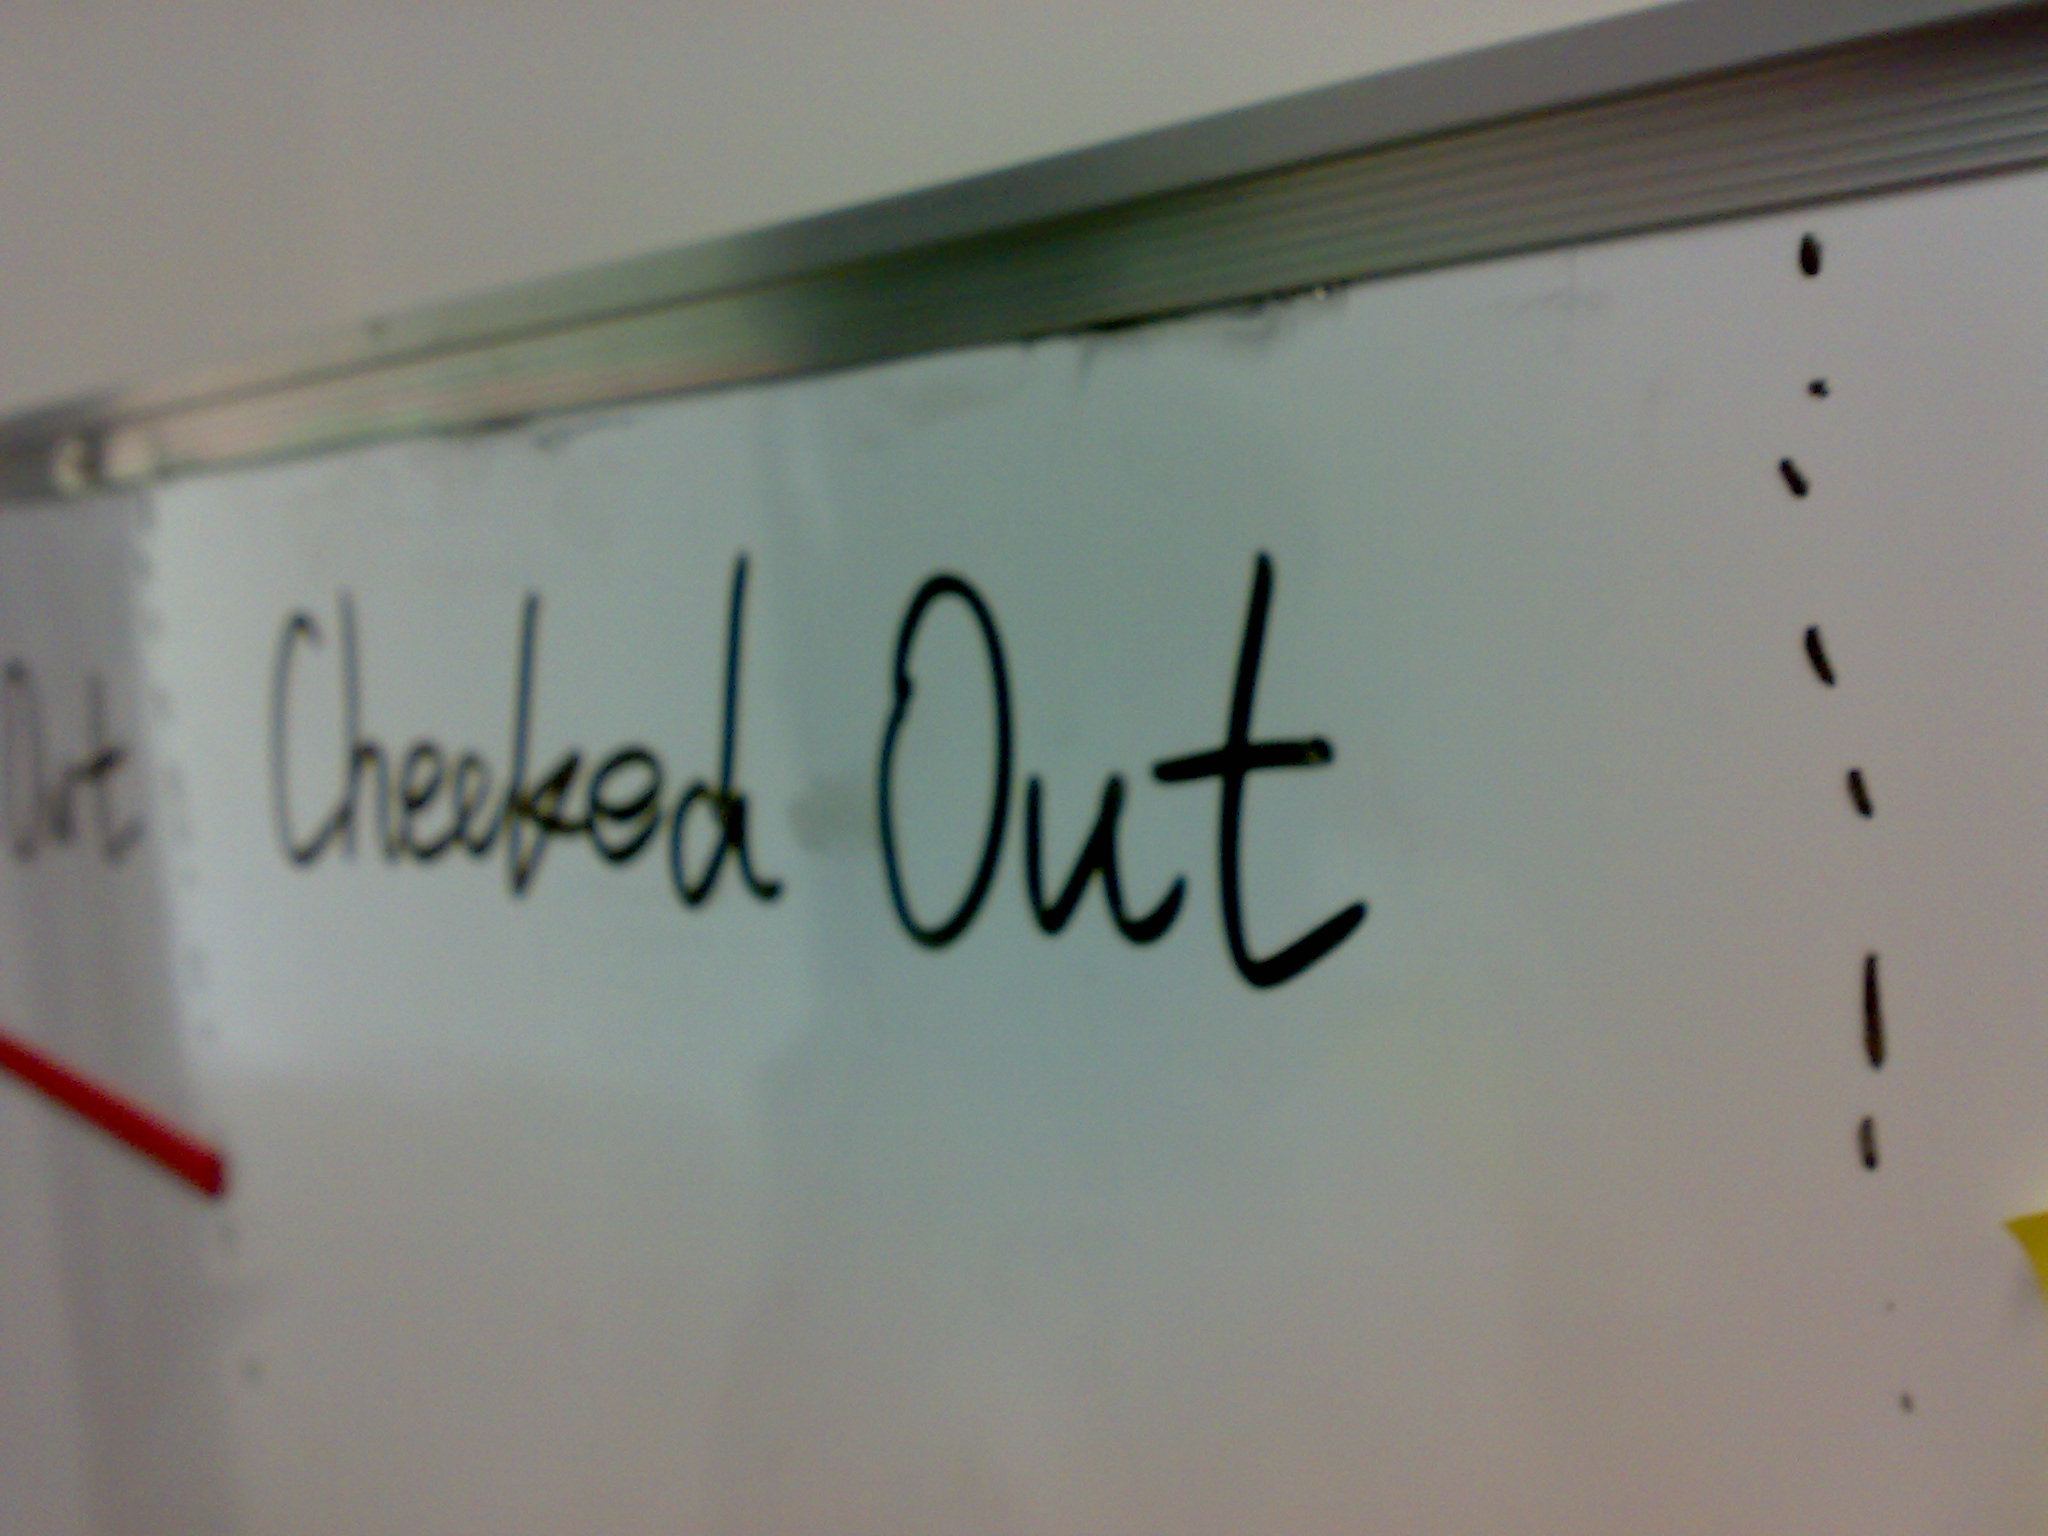 Out
Checked Out